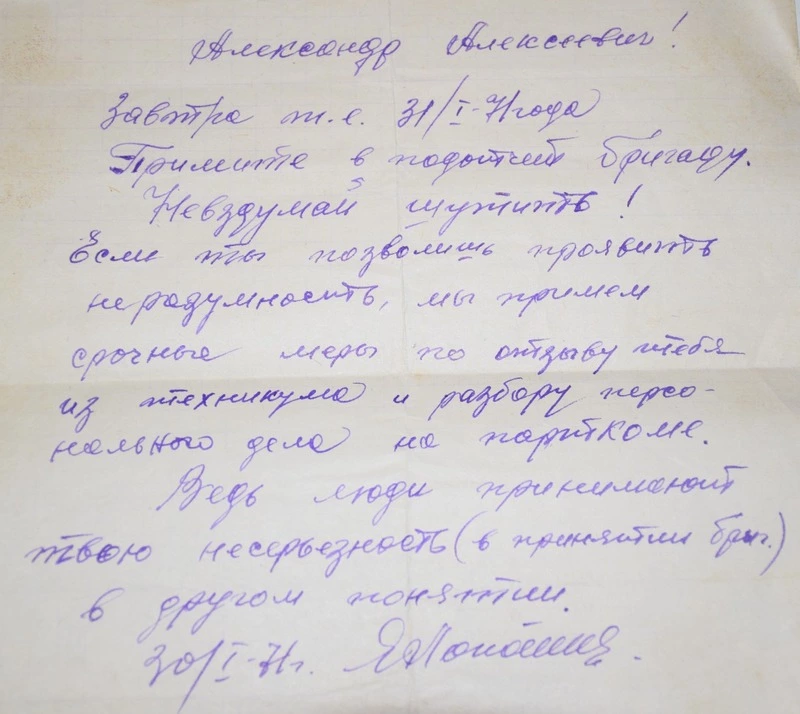 Александр Алексеевич!
Завтра т.е. 31/I-71 года
Примите в подотчет бригаду.
Невздумай шутить!
Если ты позволишь проявить
неразумность, мы примем
срочные меры по отзыву тебя
из техникума и разбору персо-
нального дела на парткоме.
Ведь люди принимают
твою несерьезность (в принятии бриг.)
в другом понятии.
30/I-71г.